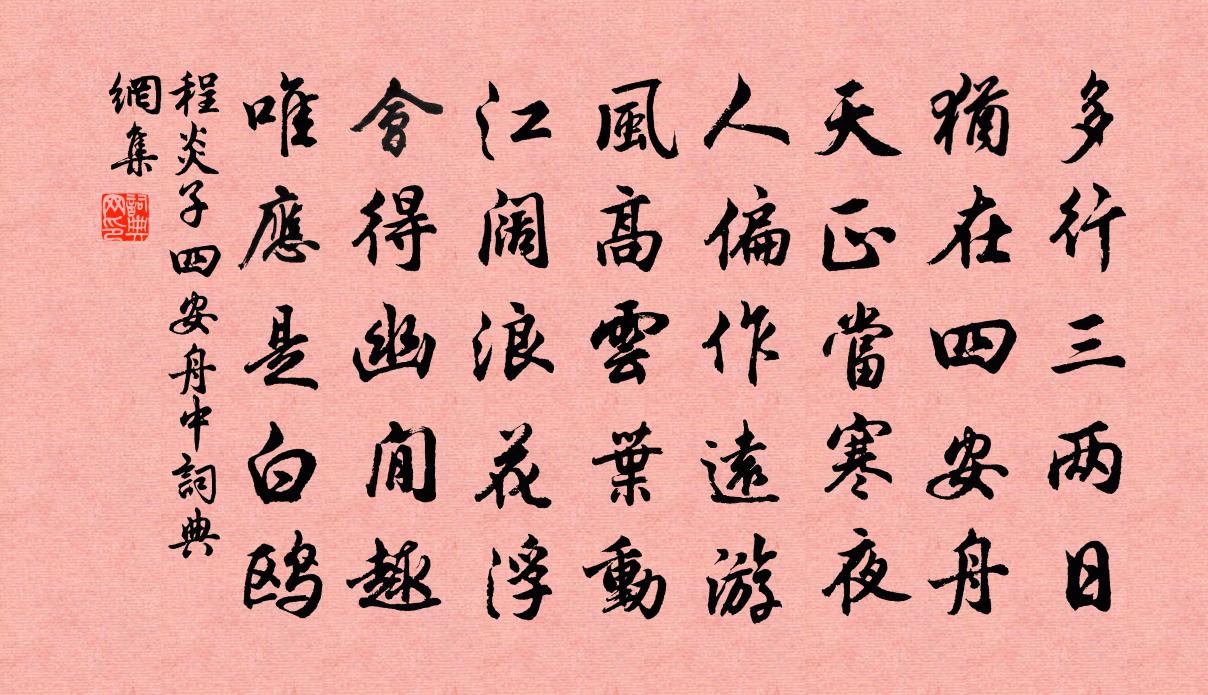 多行三两日
猶在四安舟
天正當寒夜
人偏作遠游
風高雲葉動
江阔浪花浮
會得幽閒趣
唯應是白鸥
程炎子四安舟中詞典
網集
詞典
网印